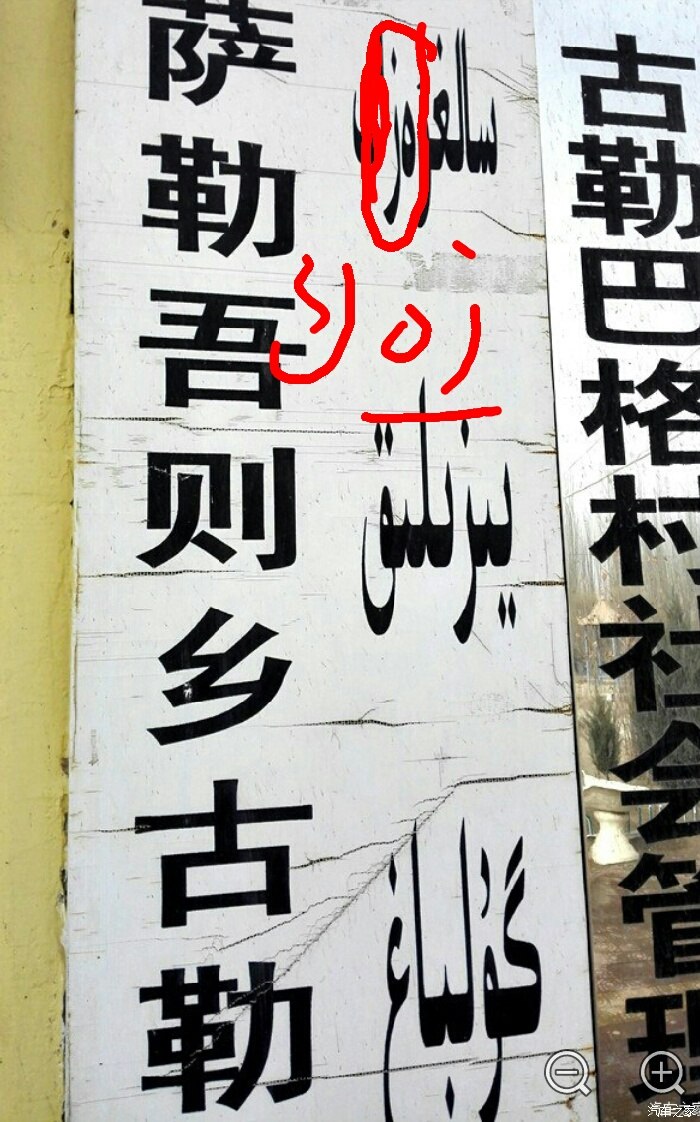 萨勒吾则乡古勒
يېزىلىق
گۈلباغ
古勒巴格村社会管理
汽车之家